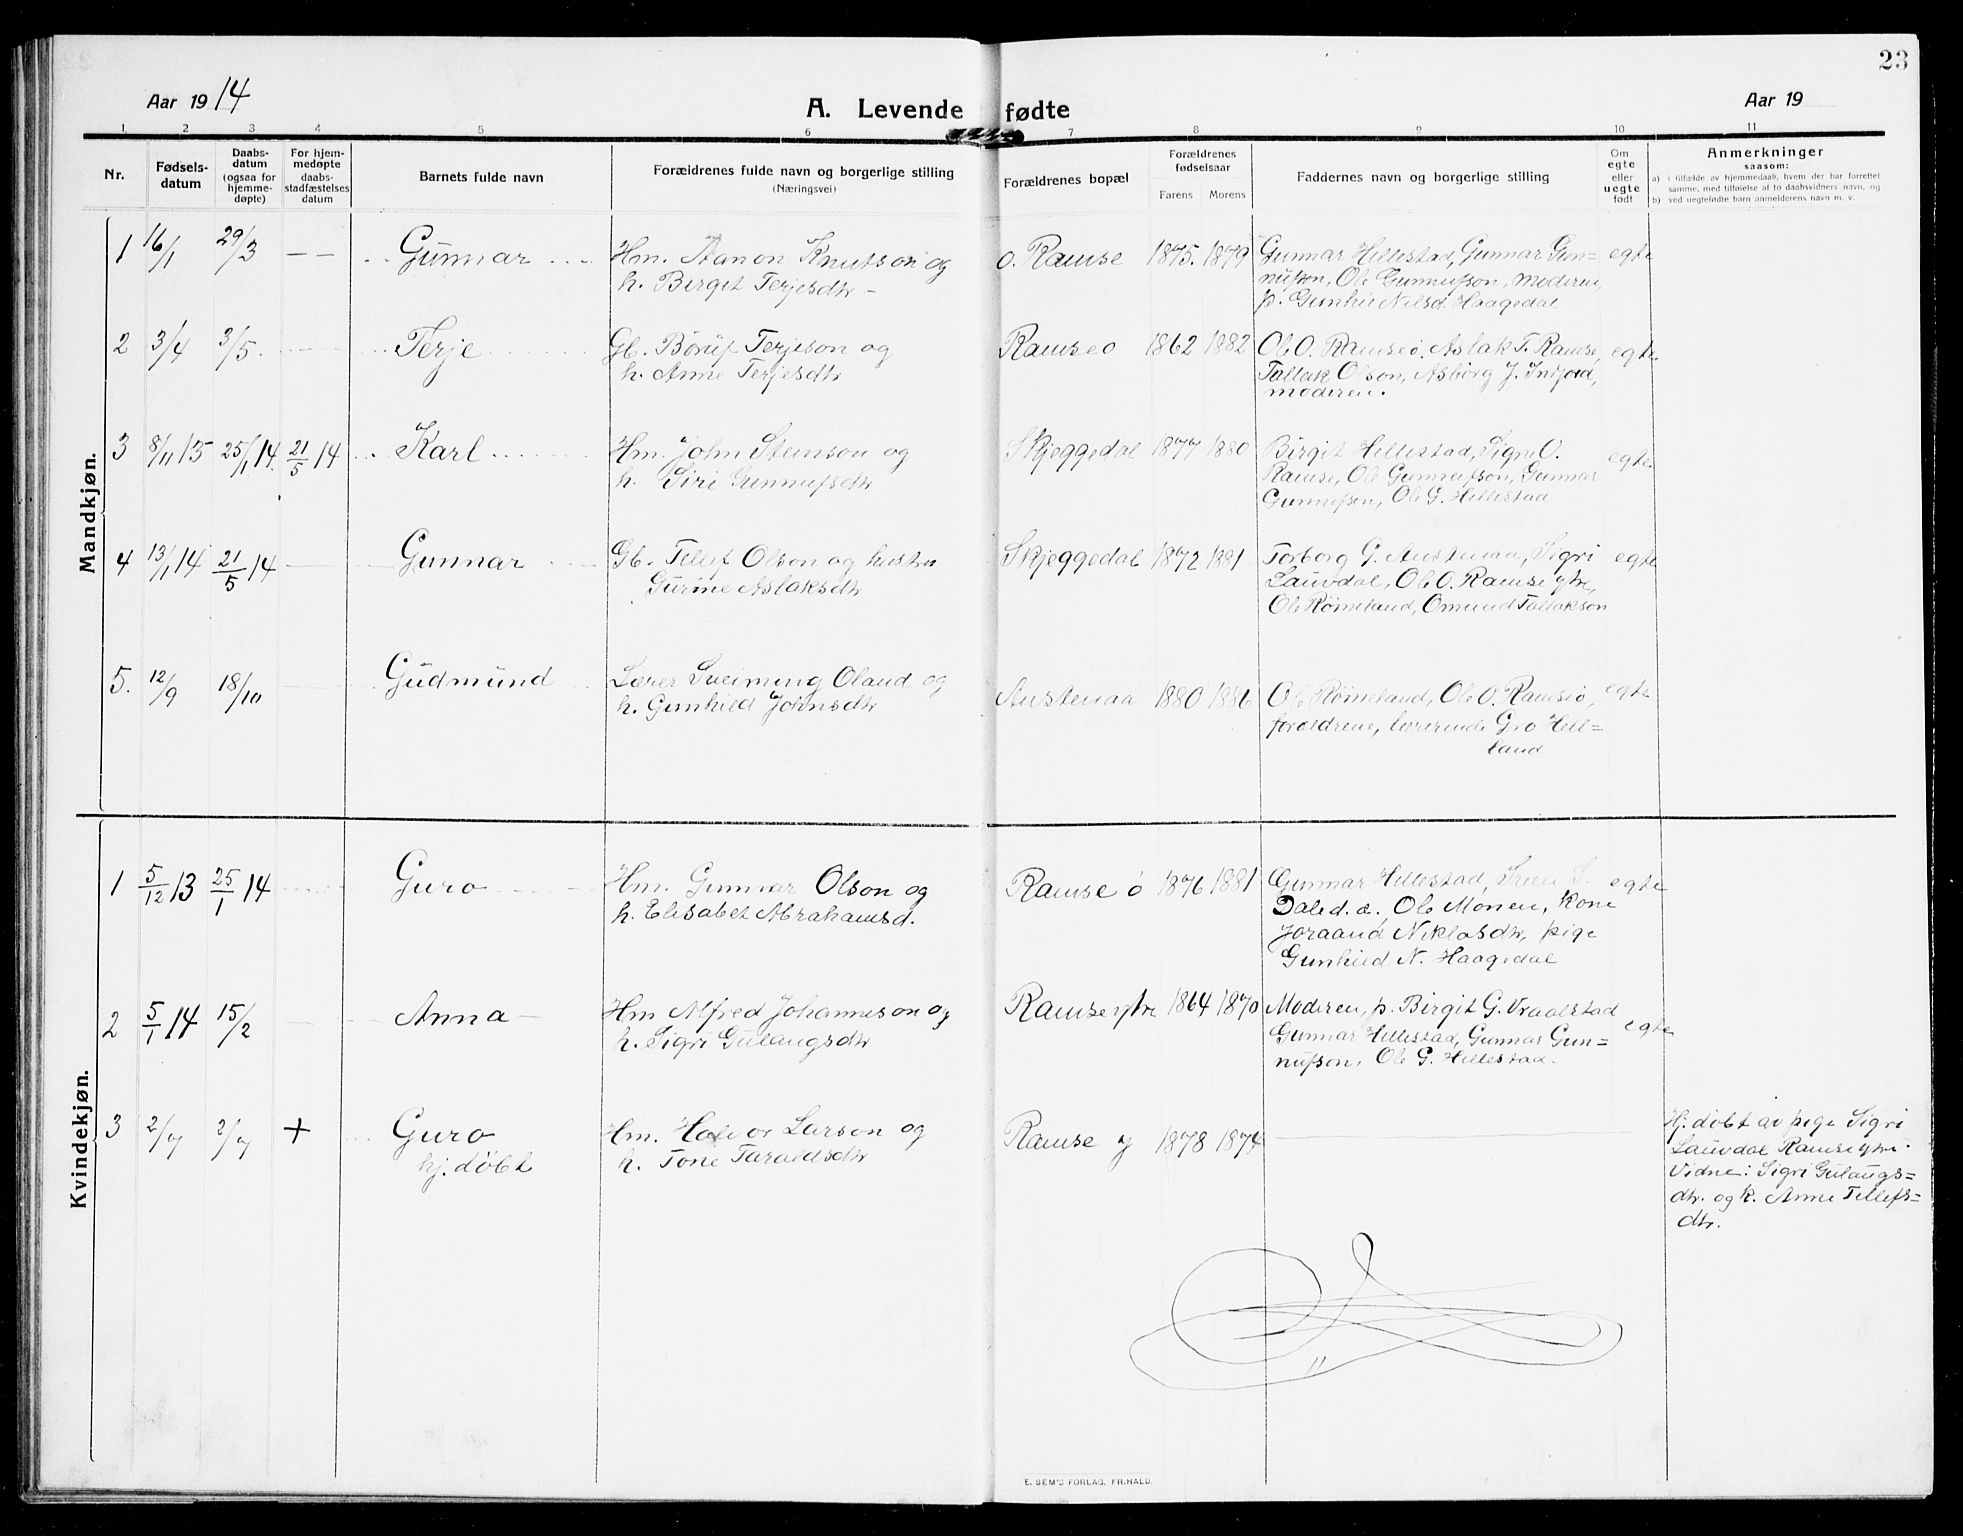 23
Aar 1914
A. Levende fødte
Aar 19
1 2 3 4 5 6 7 8 9 10 11
Nr.
Fødsels-
datum
Daabs-
datum
(ogsaa for
hjemme-
døpte)
For hjem-
medøpte
daabs-
stadfæstelses
datum
Barnets fulde navn
Forældrenes fulde navn og borgerlige stilling
(Næringsvei)
Forældrenes bopæl
Forældrenes
fødselsaar
Farens Morens
Faddernes navn og borgerlige stilling
Om
egte
eller
uegte
født
Anmerkninger
saasom:
a) i tilfælde av hjemmedaab, hvem der har forrettet
samme, med tilføielse af to daabsvidners navn, og
b) ved uegtefødte barn anmelderens navn m. v.
Mandkjøn.
1 16/1 29/3 — — Gunnar
Hm. Aanon Knutson og
h. Birgit Terjesdtr —
ø. Ramse 1875. 1879
Gunnar Hellestad, Gunnar Gun=
nufson, Ole Gunnufson, moderen,
p. Gunhil Nilsd. Haagedal
egte
2 3/4 3/5 Terje
Gb. Børuf Terjeson og
h. Anne Terjesdtr
Ramse ø 1862 1882
Ole O. Ramse ø, Aslak T. Ramse,
Tallak Olson, Asborg J.
moderen.
egte
3 8/11 13 25/1 14 21/5 14 Karl
Hm. John Stenson og
h. Siri Gunnufsdtr
Skjeggedal 1877 1880
Birgit Hellestad, Signe O.
Ramse, Ole Gunnufson, Gunnar
Gunnufsen, Ole G. Hellestad
egte
4 13/1 14 21/5 14 Gunnar
Gb. Tellef Olson og hustru
Gurine Aslaksdtr
Skjeggedal 1872 1881
Torborg G. Austenaa, Sigri
Lauvdal, Ole O. Ramse ytre,
Ole Rømeland, Omund Tallakson
egte
5. 12/9 18/10 Gudmund
Lærer Sveinung Oland og
h. Gunhild Johnsdtr
Austenaa 1880 1886
Ole Rømeland, Ole O. Ramse ø,
forældrene, lærerinde Gro Hel=
land
egte
Kvindekjøn.
1 5/12 13 25/1 14 Guro
Hm. Gunnar Olson og
h. Elisabet Abrahamsd.
Ramse ø 1876 1881
Gunnar Hellestad, S.
Dale d. æ., Ole Monen, kone
Joraand Niklasdtr, pige
Gunhild N. Haagedal
egte
2 5/1 14 15/2 — Anna —
Hm Alfred Johanneson og
h. Sigri Gulaugsdtr
Ramse ytre 1864 1870
Moderen, p. Birgit G. Vraalstad
Gunnar Hellestad, Gunnar Gun=
nufson, Ole G. Hellestad.
egte
3 2/7 2/7 + Guro
hj. døbt
Hm. Halvor Larson og
h. Tone Taraldsdtr
Ramse y 1878 1874
Hj. døbt av pige Sigri
Lauvdal Ramse ytre.
Vidne: Sigri Gulaugs=
dtr. og k. Anne Tellefs=
dtr.
E. SEM'S FORLAG, FR.HALD.